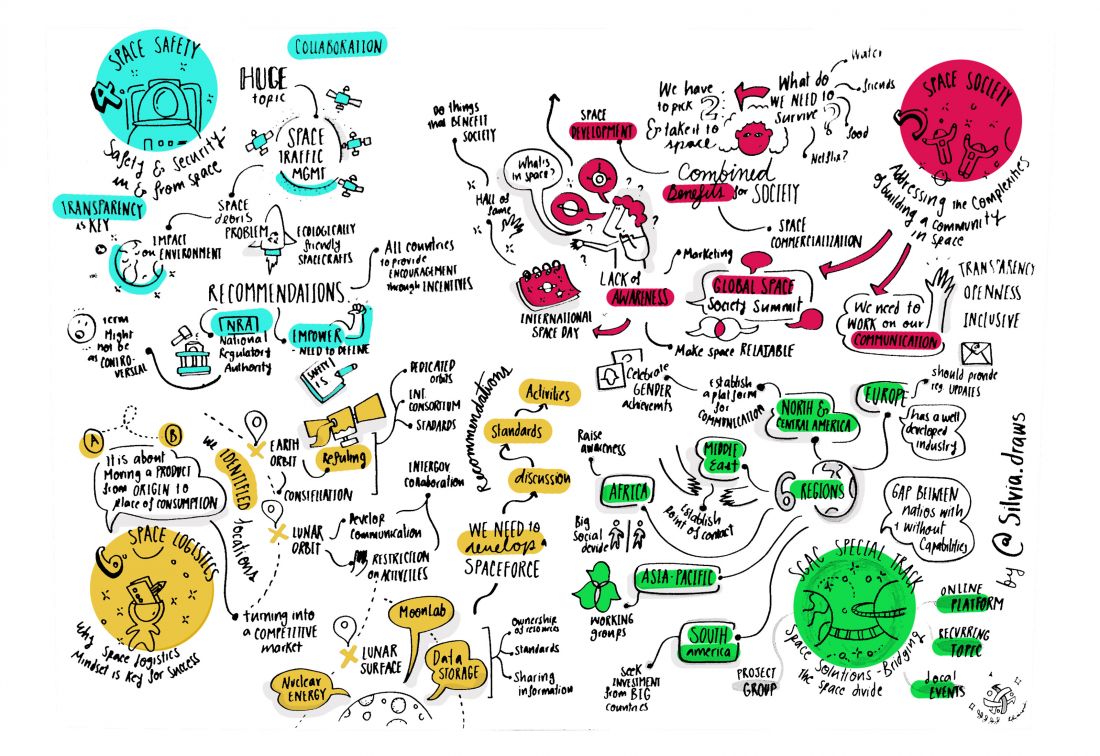 SPACE SAFETY
4.
Safety & Security
in & from space
COLLABORATION
HUGE
topic
SPACE
TRAFFIC
MGMT
TRANSPARENCY
is KEY
SPACE
debris
PROBLEM
IMPACT
on ENVIRONMENT
ECOLOGICALLY
friendly
SPACECRAFTS
All countries
to provide
ENCOURAGEMENT
through INCENTIVES
RECOMMENDATIONS
TERM
Might
not be
as CONTRO-
VERSIAL
NRA
National
Regulatory
Authority
EMPOWER
- NEED TO DEFINE
SAFETY
IS
Do things
that BENEFIT
SOCIETY
HALL of
fame
SPACE
DEVELOPMENT
What is
in space?
We have
to pick
& take it to
space
What do
WE NEED to
Survive
?
Water
friends
food
Netflix?
SPACE SOCIETY
5
Addressing the Complexities
of building a community
in Space
Combined
Benefits for SOCIETY
SPACE
COMMERCIALIZATION
INTERNATIONAL
SPACE DAY
LACK of
AWARENESS
Marketing
GLOBAL SPACE
Society Summit
Make space RELATABLE
We need to
WORK on our
COMMUNICATION
TRANSPARENCY
OPENNESS
INCLUSIVE
A
B
It is about
Moving a PRODUCT
from ORIGIN to
place of CONSUMPTION
SPACE LOGISTICS
6.
Why Space logistics
Mindset is Key for Success
We
IDENTIFIED
locations
EARTH
ORBIT
Refueling
DEDICATED
orbits
INT.
CONSORTIUM
STADARDS
CONSTELLATION
LUNAR
ORBIT
Develop
communication
RESTRICTION
on ACTIVITIES
INTERGOV
Collaboration
turning into
a COMPETITIVE
market
LUNAR
SURFACE
MoonLab
Data
STORAGE
Nuclear
ENERGY
Ownership
of resources
Standards
Sharing
information
Recommendations
Activities
Standards
discussion
WE NEED to
develop a
SPACEFORCE
Celebrate
GENDER
achievments
Establish
a platform
for
COMMUNICATION
NORTH &
CENTRAL AMERICA
EUROPE
should provide
reg. UPDATES
has a well
developed
industry
6
REGIONS
MIDDLE
East
Establish
Point of contact
Raise
awareness
AFRICA
Big
Social
divide
ASIA-PACIFIC
WORKING
groups
SOUTH
america
seek
INVESTMENT
from BIG
countries
GAP BETWEEN
natios with
& without
Capabilities
SGAC SPECIAL TRACK
Space Solutions - Bridging
the Space divide
PROJECT
GROUP
ONLINE
PLATFORM
RECURRING
TOPIC
local
EVENTS
by @Silvia.draws